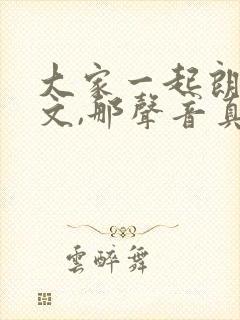 大家一起朗
文,那聲音真
雲醉舞